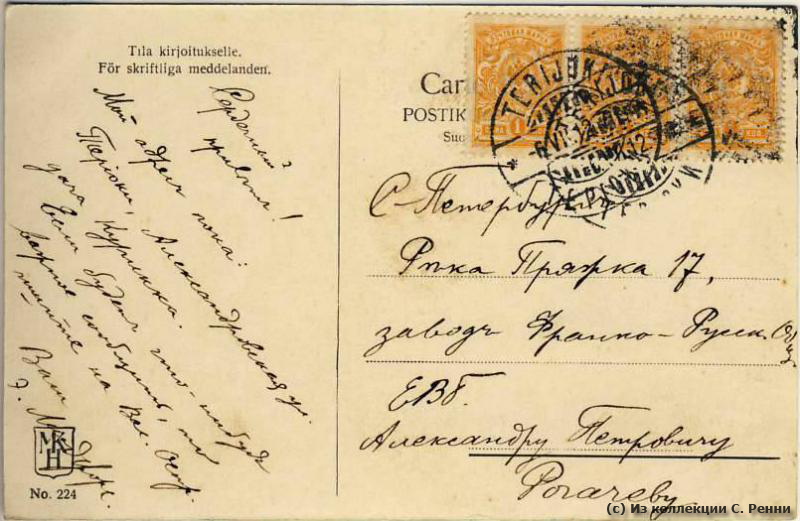 Tila kirjoitukselle.
För skriftliga meddelanden.
Сердечный
привет!
Мой адрес пока:
Терiоки, Александровская ул.
дача Куринка.
Если будет что-нибудь
важное сообщить, то
пишите на Вас. Остр.
Ваш
Э.
МКН
No. 224
Cart
POSTIK
Suo
TERIJOKI
С-Петербургъ
Рѣка Пряжка 17,
заводъ Франко-Русск. Общ
ЕВБ.
Александру Петровичу
Рогачеву
(c) Из коллекции С. Ренни